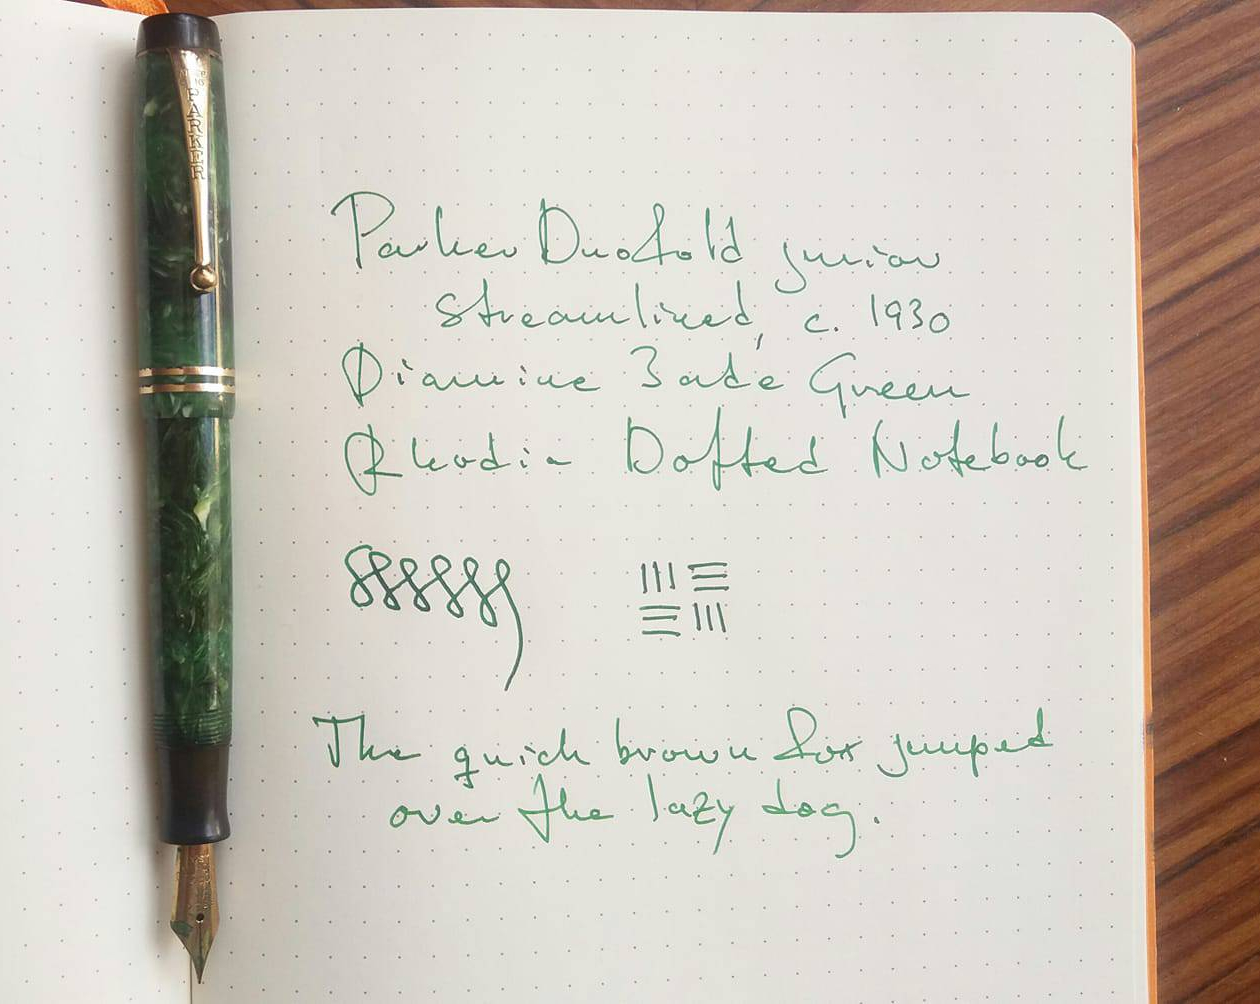 PARKER
Parker Duofold junior
streamlined, c. 1930
Diamine Jade Green
Rhodia Dotted Notebook
The quick brown fox jumped
over the lazy dog.